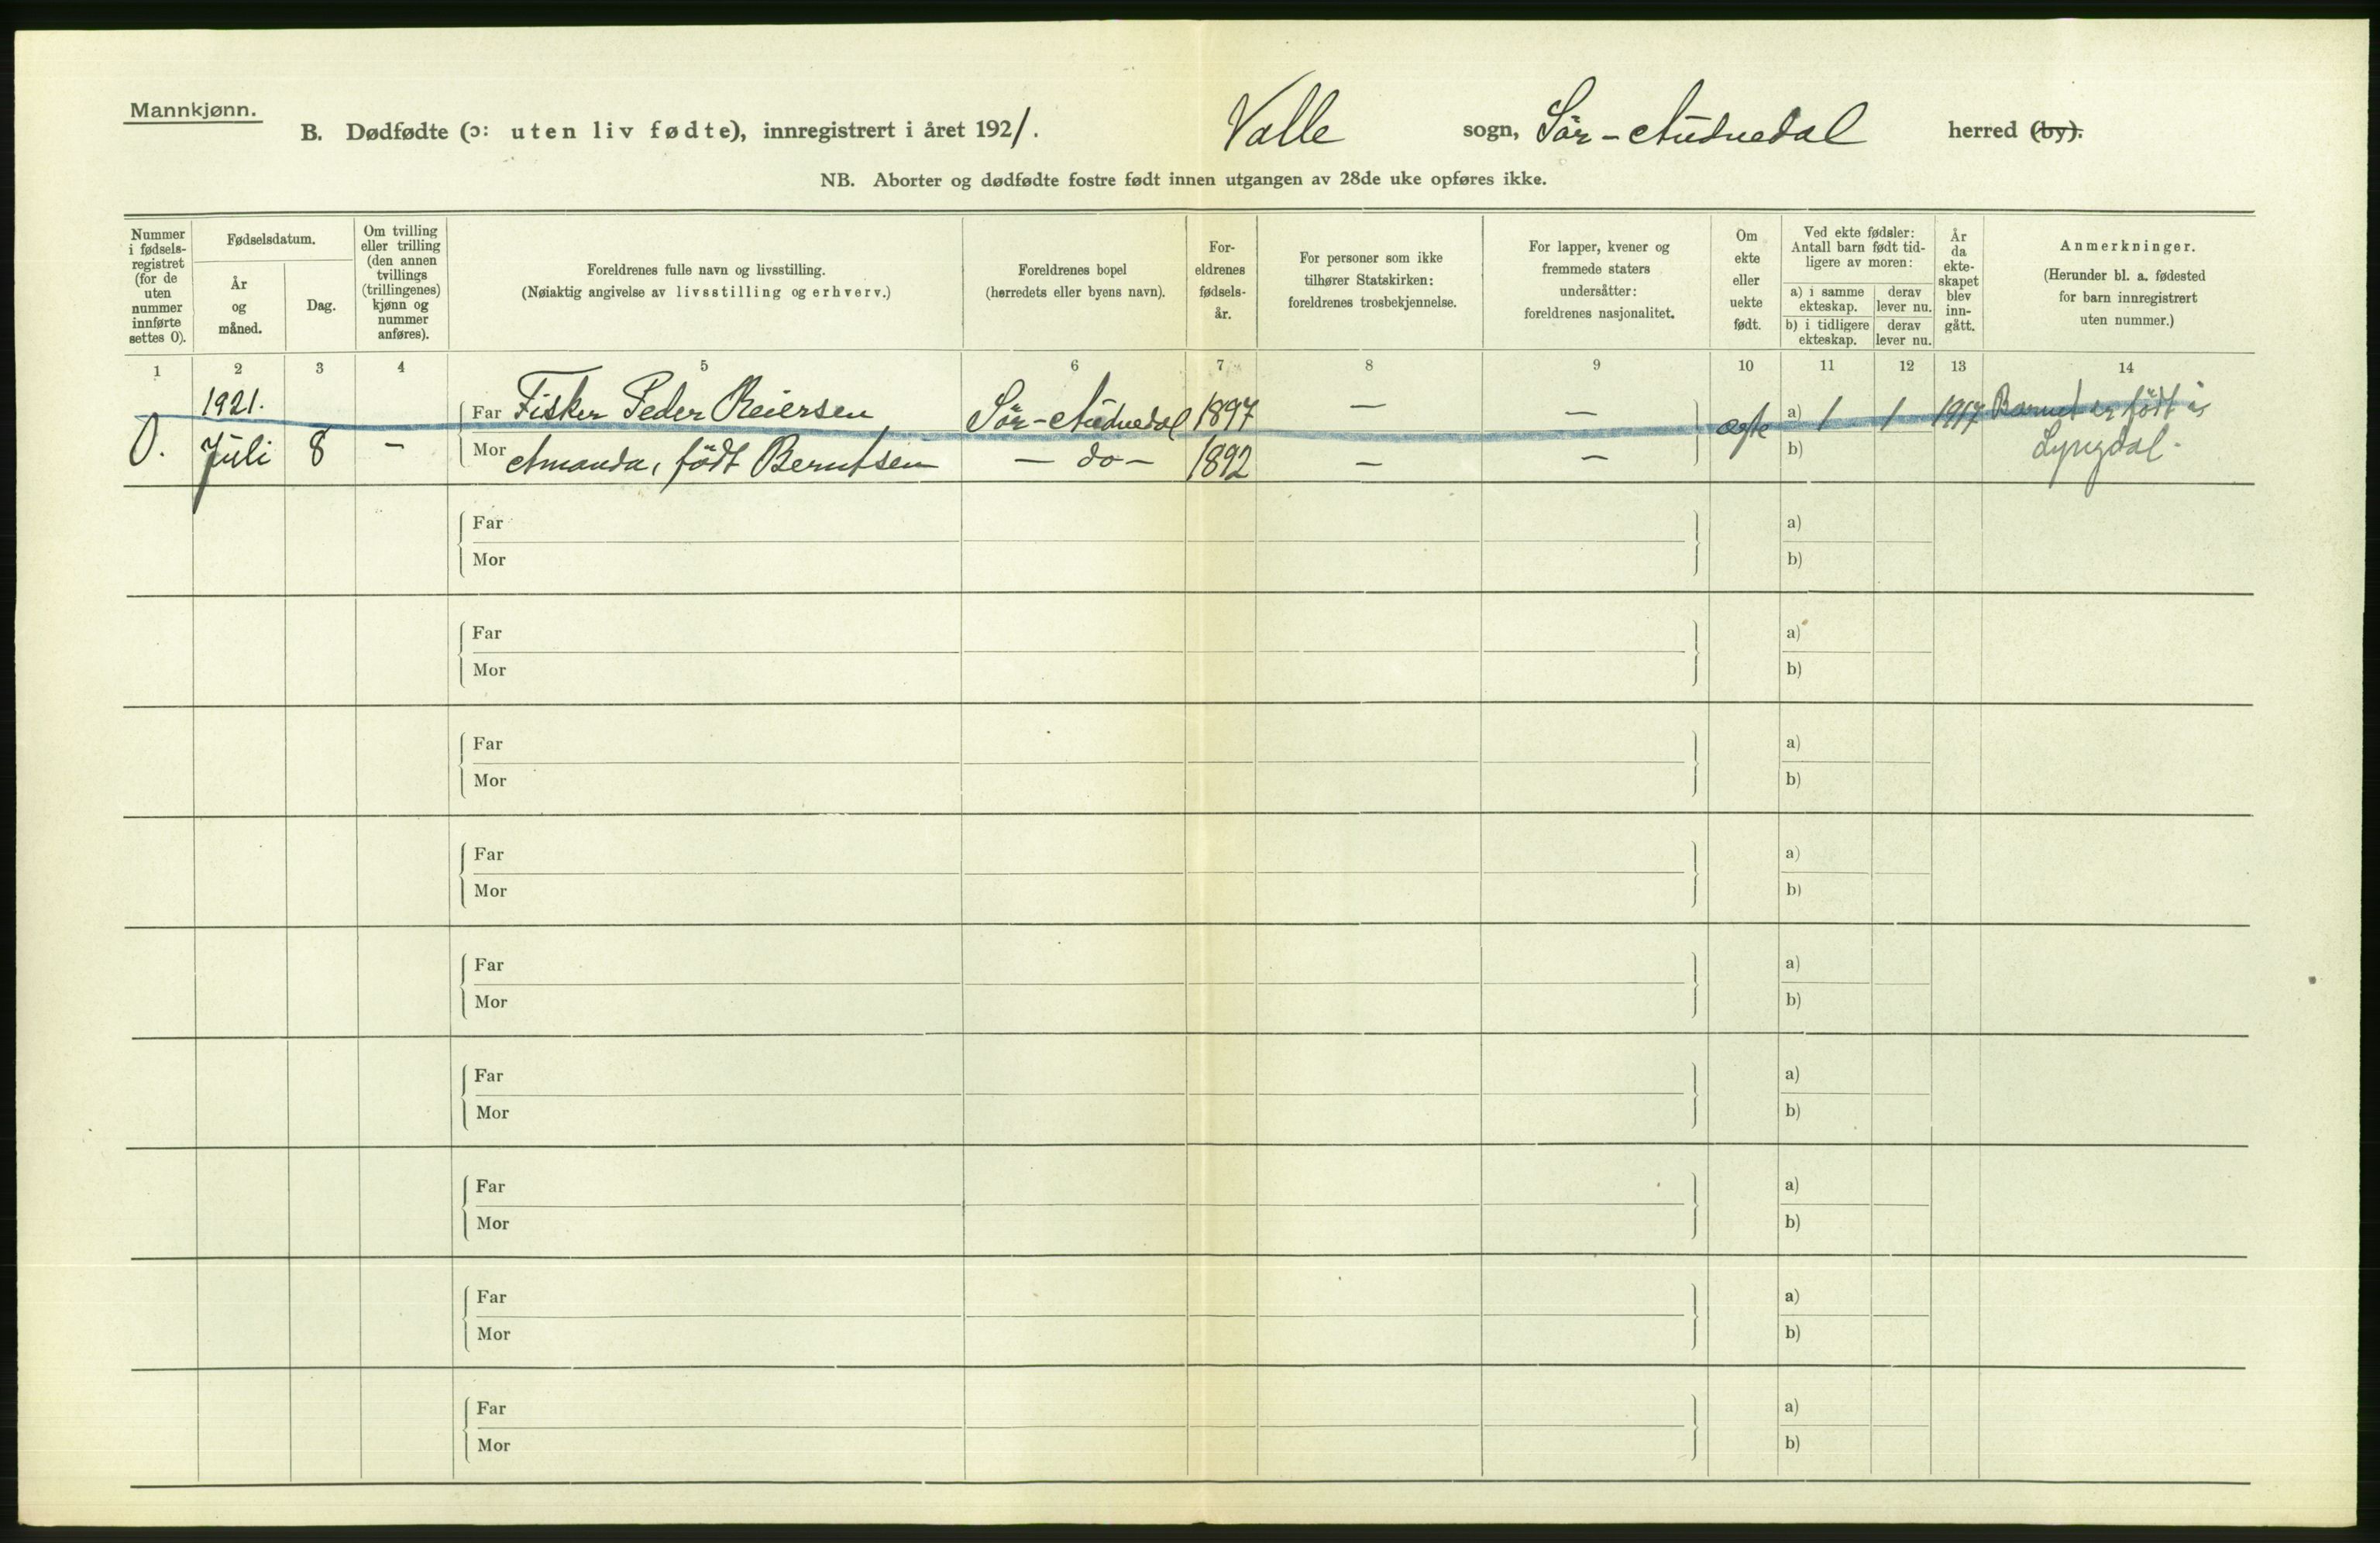 Mannkjønn.
B. Dødfødte (ɔ: uten liv fødte), innregistrert i året 1921. Valle sogn, Sör-Audnedal herred (by).
NB. Aborter og dødfødte fostre født innen utgangen av 28de uke opføres ikke.
Nummer
i fødsels-
registret
(for de
uten
nummer
innførte
settes 0).
Fødselsdatum.
År
og
måned.
Dag.
Om tvilling
eller trilling
(den annen
tvillings
(trillingenes)
kjønn og
nummer
anføres).
Foreldrenes fulle navn og livsstilling.
(Nøiaktig angivelse av livsstilling og erhverv.)
Foreldrenes bopel
(herredets eller byens navn).
For-
eldrenes
fødsels-
år.
For personer som ikke
tilhører Statskirken:
foreldrenes trosbekjennelse.
For lapper, kvener og
fremmede staters
undersåtter:
foreldrenes nasjonalitet.
Om
ekte
eller
uekte
født.
Ved ekte fødsler:
Antall barn født tid-
ligere av moren:
a) i samme
ekteskap.
derav
lever nu.
b) i tidligere
ekteskap.
derav
lever nu.
År
da
ekte-
skapet
blev
inn-
gått.
Anmerkninger.
(Herunder bl. a. fødested
for barn innregistrert
uten nummer.)
1 2 3 4 5 6 7 8 9 10 11 12 13 14
1921.
Far Fisker Peder Reiersen Sör-Audnedal 1897 — — a) 1 1 1917 Barnet er födt i
0. Juli 8 – Mor Amanda, födt Berntsen — do — 1892 — — ægte b) Lyngdal.
Far a)
Mor b)
Far a)
Mor b)
Far a)
Mor b)
Far a)
Mor b)
Far a)
Mor b)
Far a)
Mor b)
Far a)
Mor b)
Far a)
Mor b)
Far a)
Mor b)